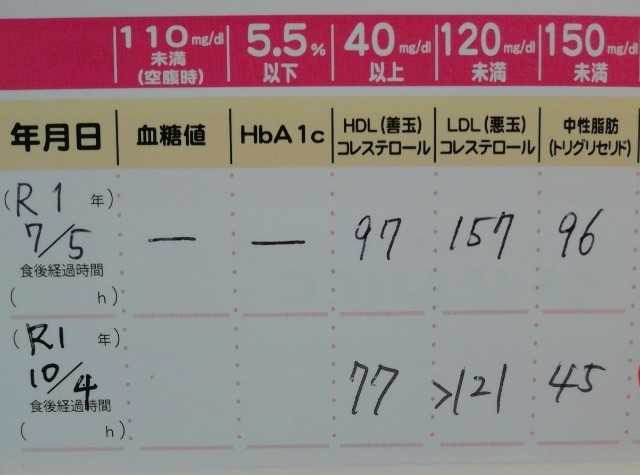 110mg/dl 未満 (空腹時) 5.5% 以下 40mg/dl 以上 120mg/dl 未満 150mg/dl 未満
年月日 血糖値 HbA1c HDL(善玉)コレステロール LDL(悪玉)コレステロール 中性脂肪(トリグリセリド)
(R1 年)
7/5 — — 97 157 96
食後経過時間
( h)
(R1 年)
10/4 77 >121 45
食後経過時間
( h)